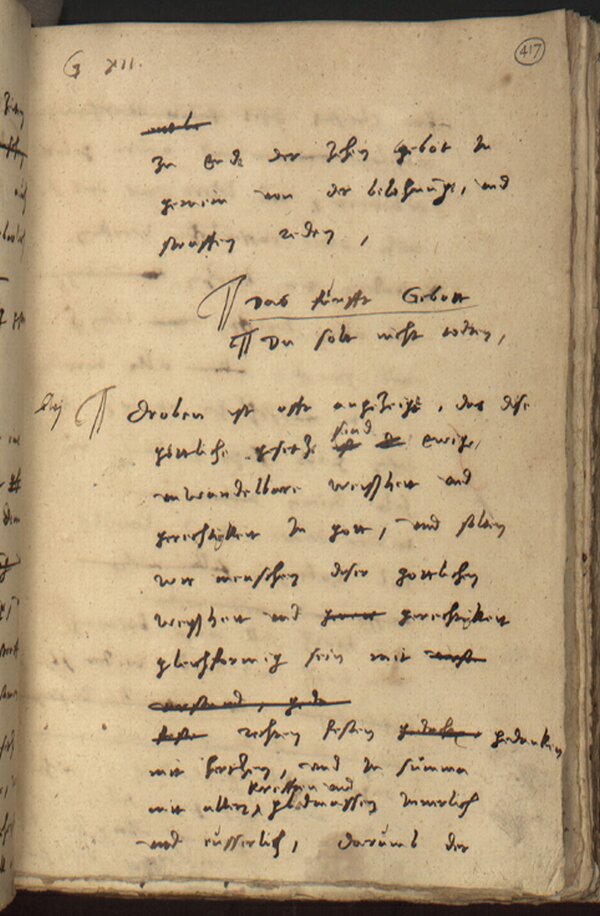 G XII.
417
zu end der zehen gebot in
gemein von der belohnung, und
straffen reden,
Das funfft Gebott
Du solt nicht todten,
Droben ist offt angezeigt, das dise
gottliche gesetze sind ewige,
unwandelbare weißheit und
gerechtigkeit in gott, und sollen
wir menschen diser gottlichen
weißheit und gerechtikeit
gleichformig sein mit
rechten festen gedanken
mit hertzen, und in summa
mit allen krefften und gliedmassen innerlich
und eusserlich, darumb der